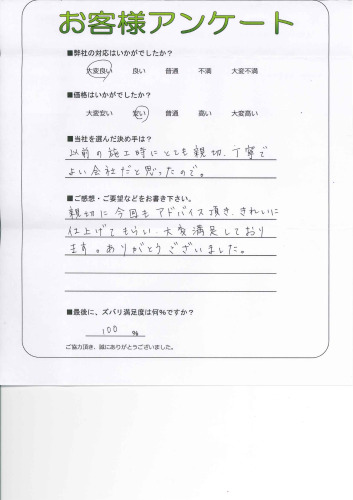 お客様アンケート
■弊社の対応はいかがでしたか？
大変良い 良い 普通 不満 大変不満
■価格はいかがでしたか？
大変安い 安い 普通 高い 大変高い
■当社を選んだ決め手は？
以前の施工時にとても親切、丁寧で
よい会社だと思ったので。
■ご感想・ご要望などをお書き下さい。
親切に今回もアドバイス頂き、きれいに
仕上げてもらい、大変満足しており
ます。ありがとうございました。
■最後に、ズバリ満足度は何%ですか？
100 %
ご協力頂き、誠にありがとうございました。